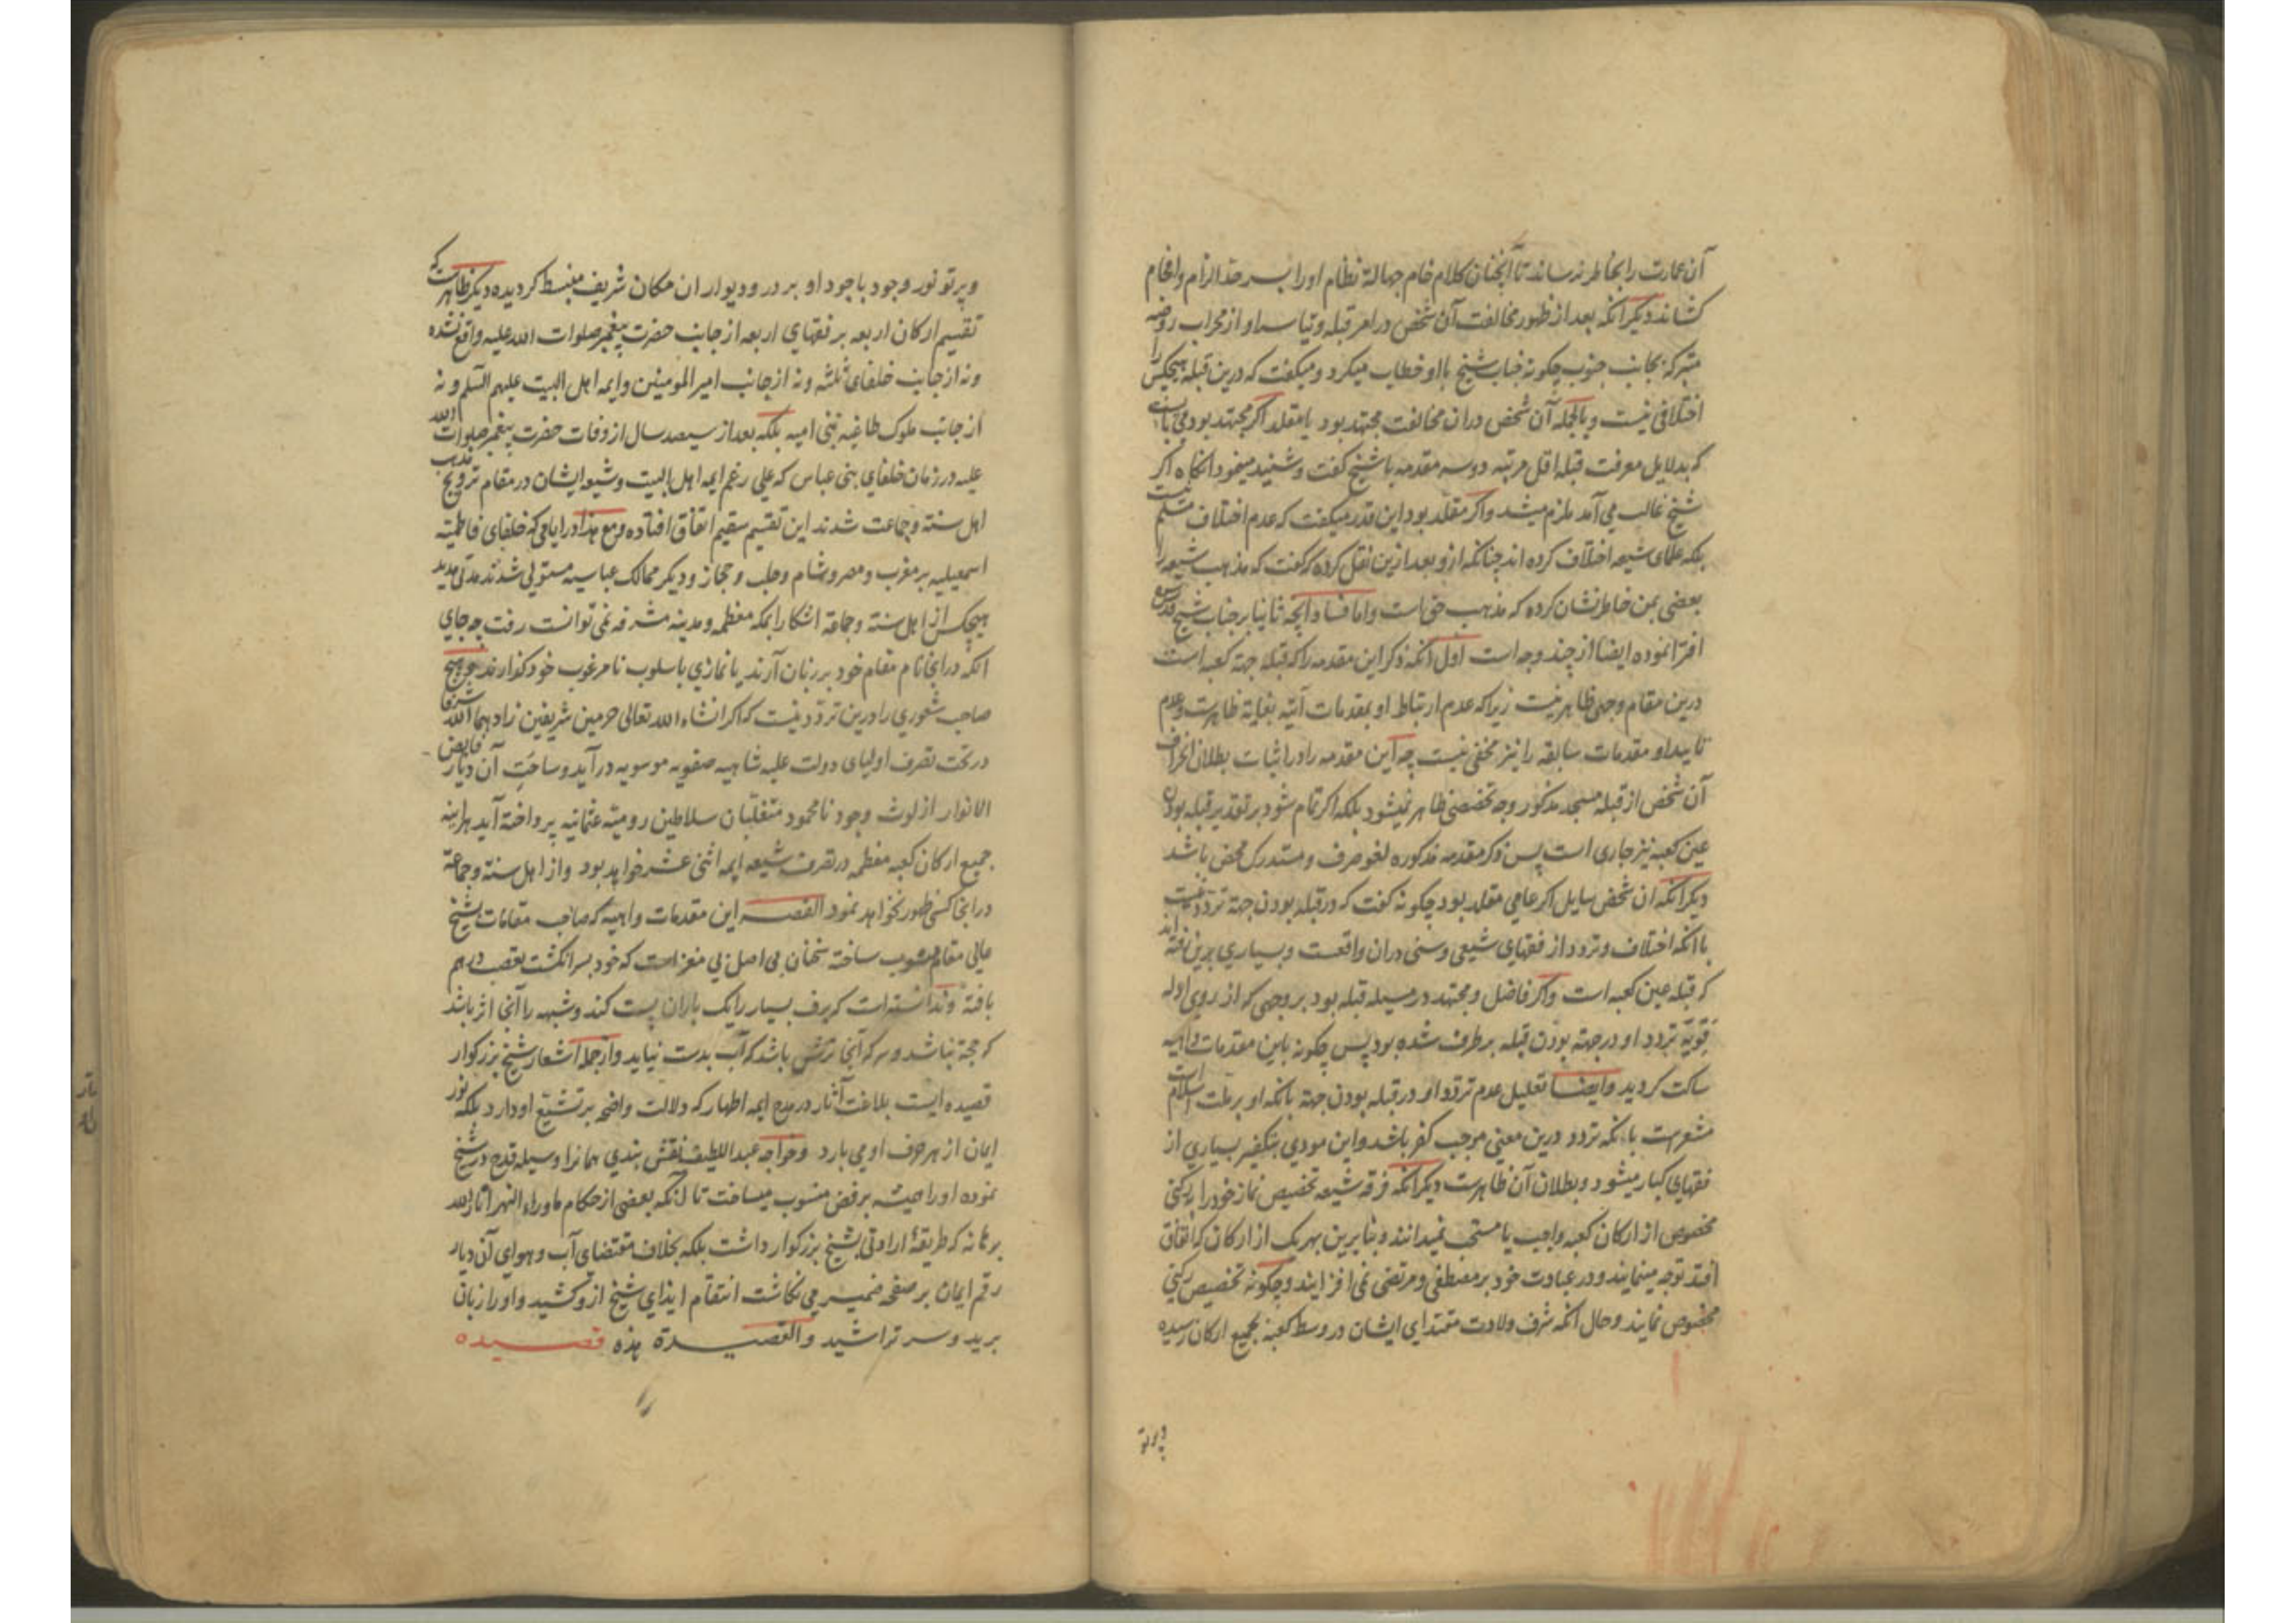 آن عمارت را بخاطر نرساند تا آنچنان کلام خام جهالة نظام او را بسر حد الزام وافحام
کشاند دیکر انکه بعد از ظهور مخالفت آن شخص در امر قبله وتیاسر او از محراب روضه
متبرکه بجانب جنوب چکونه جناب شیخ با او خطاب میکرد ومیکفت که درین قبله هیچکس را
اختلافی نیست وبالجمله آن شخص دران مخالفت مجتهد بود یا مقلد اکر مجتهد بود می بایست
که بدلایل معرفت قبله اقل مرتبه دو سه مقدمه با شیخ کفت وشنید مینمود انکاه اکر
شیخ غالب می آمد ملزم میشد واکر مقلد بود این قدر میکفت که عدم اختلاف مسلم نیست
بلکه علمای شیعه اختلاف کرده اند چنانکه ازو بعد ازین نقل کرده که کفت که مذهب شیعه را
بعضی بمن خاطر نشان کرده که مذهب حق است واما فساد آنچه ثانیا بر جناب شیخ قدس سره
افترا نموده ایضا از چند وجه است اول انکه ذکر این مقدمه را که قبله جهة کعبه است
درین مقام وجهی ظاهر نیست زیرا که عدم ارتباط او بمقدمات آتیه بغایة ظاهرست وعدم
تایید او مقدمات سابقه را نیز مخفی نیست چه این مقدمه را در اثبات بطلان انحراف
آن شخص از قبله مسجد مذکور وجه تخصصی ظاهر نمیشود بلکه اکر تمام شود بر تقدیر قبله بودن
عین کعبه نیز جاری است پس ذکر مقدمه مذکوره لغو صرف ومستدرک محض باشد
دیکر انکه ان شخص سایل اکر عامی مقلد بود چکونه کفت که در قبله بودن جهة تردد نیست
با انکه اختلاف وتردد از فقهای شیعی وسنی دران واقعست وبسیاری برین رفته اند
که قبله عین کعبه است واکر فاضل ومجتهد در مسیله قبله بود بر وجهی که از روی ادله
قویّه تردد او در جهة بودن قبله بر طرف شده بود پس چکونه باین مقدمات واهیه
ساکت کردید وایضا تعلیل عدم تردد او در قبله بودن جهة بانکه او بر ملت اسلام است
مشعرست بانکه تردد درین معنی موجب کفر باشد واین مودی بتکفیر بسیاری از
فقهای کبار میشود وبطلان آن ظاهرست دیکر انکه فرقه شیعه تخصیص نماز خود را برکنی
مخصوص از ارکان کعبه واجب یا مستحب نمیدانند وبنابرین بهر یک از ارکان که اتفاق
افتد توجه مینمایند ودر عبادت خود بر مصطفی ومرتضی نمی افزایند وچکونه تخصیص رکنی
مخصوص نمایند وحال انکه شرف ولادت مقتدای ایشان در وسط کعبه بجمیع ارکان رسیده
وپرتو
وپرتو نور وجود باجود او بر در ودیوار ان مکان شریف منبسط کردیده دیکر ظاهرست که
تقسیم ارکان اربعه بر فقهای اربعه از جانب حضرت پیغمبر صلوات الله علیه واقع نشده
ونه از جانب خلفای ثلثه ونه از جانب امیر المومنین وایمه اهل البیت علیهم السلم ونه
از جانب ملوک طاغیه بنی امیه بلکه بعد از سیصد سال از وفات حضرت پیغمبر صلوات الله
علیه در زمان خلفای بنی عباس که علی رغم ایمه اهل البیت وشیعه ایشان در مقام ترویج مذهب
اهل سنة وجماعت شدند این تقسیم سقیم اتفاق افتاده ومع هذا در ایامی که خلفای فاطمیّه
اسمعیلیه بر مغرب ومصر وشام وحلب وحجاز ودیکر ممالک عباسیه مستولی شدند مدتی مدید
هیچکس از اهل سنة وجماعة اشکارا بمکه معظمه ومدینه مشرفه نمی توانست رفت چه جای
انکه در انجا نام مقام خود بر زبان آرند یا نمازی باسلوب نامرغوب خود کذارند وهیچ
صاحب شعوری را درین تردد نیست که اکر انشاء الله تعالی حرمین شریفین زادهما الله شرفا
در تحت تصرف اولیای دولت علیه شاهیه صفویه موسویه در آید وساحت آن دیار فایض
الانوار از لوث وجود نامحمود متغلّبان سلاطین رومیّه عثمانیه پرداخته آید هراینه
جمیع ارکان کعبه معظمه در تصرف شیعه ایمه اثنی عشر خواهد بود واز اهل سنة وجماعة
در انجا کسی ظهور نخواهد نمود القصه این مقدمات واهیه که صاحب مقامات بشیخ
عالی مقام منسوب ساخته سخنان بی اصل بی مغز است که خود بسر انکشت تعصب درهم
بافته وندانسته است که برف بسیار را یک باران پست کند وشبهه را آنجا اثر باشد
که حجة نباشد وسرکه آنجا ترش باشد که آب بدست نیاید وازجمله اشعار شیخ بزرکوار
قصیده ایست بلاغت آثار در مدح ایمه اطهار که دلالت واضحه بر تشیّع او دارد بلکه نور
ایمان از هر حرف او می بارد وخواجه عبد اللطیف نقش بندی همانرا وسیله قدح در شیخ
نموده او را همیشه برفض منسوب میساخت تا آنکه بعضی از حکام ماوراء النهر انار الله
برهانه که طریقهٔ ارادتی بشیخ بزرکوار داشت بلکه بخلاف مقتضای آب وهوای آن دیار
رقم ایمان بر صفحه ضمیر می نکاشت انتقام ایذای شیخ ازو کشید واو را زبان
برید وسر تراشید والقصیدة هذه قصیده